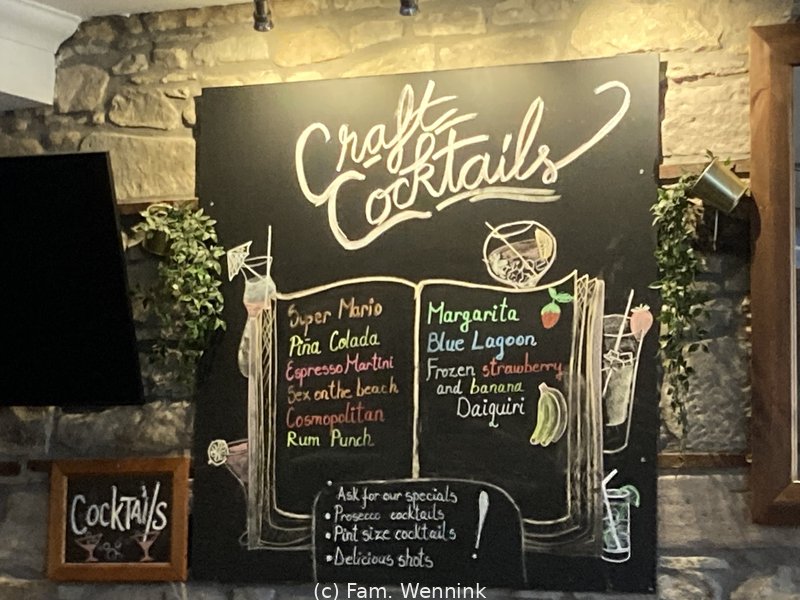 Craft
Cocktails
Super Mario
Piña Colada
Espresso Martini
Sex on the beach
Cosmopolitan
Rum Punch
Margarita
Blue Lagoon
Frozen strawberry
and banana
Daiquiri
• Ask for our specials
• Prosecco cocktails
• Pint size cocktails
• Delicious shots
!
Cocktails
(c) Fam. Wennink